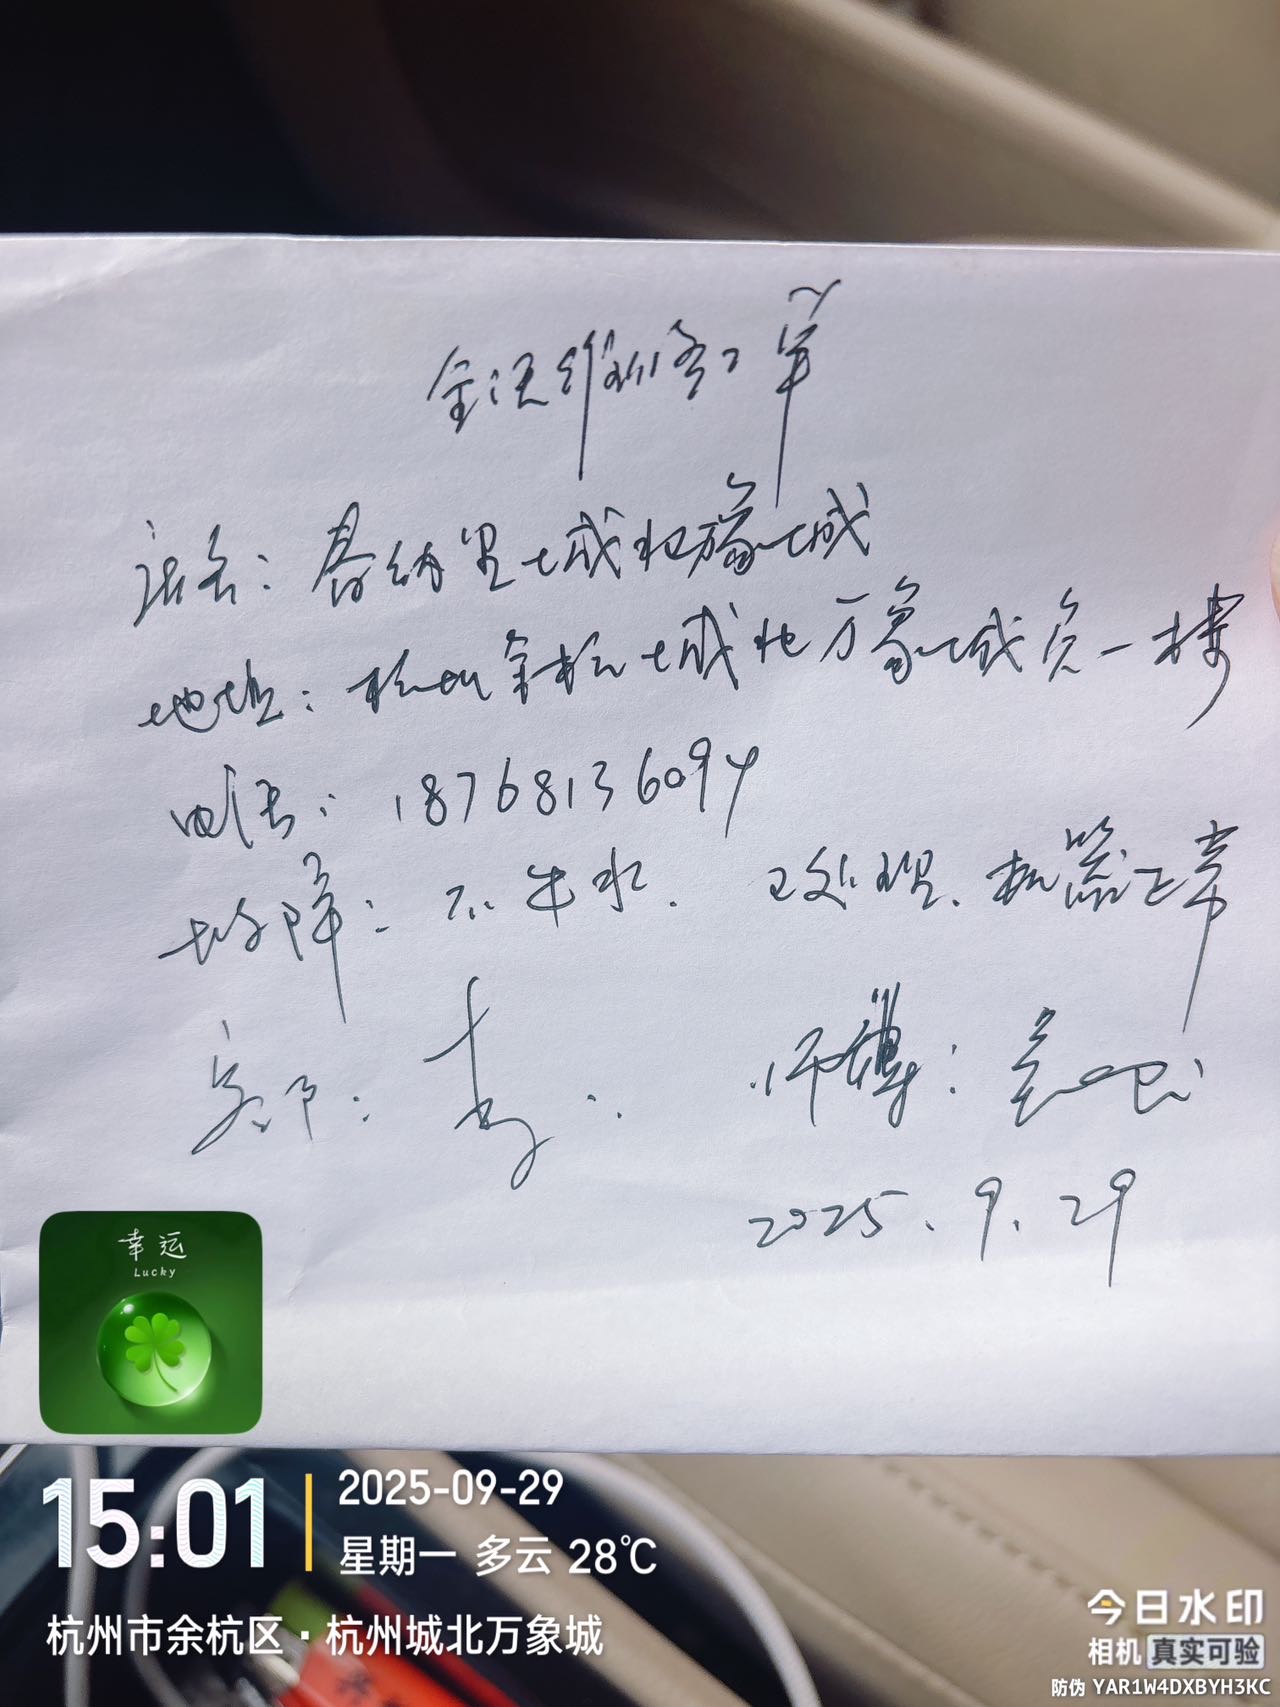 维修工单
店名：春纳里城北万象城
地址：杭州余杭城北万象城负一楼
电话：18768136094
故障：不牛水. 已处理、机器正常
客户：李 师傅：
2025、9、29
幸运
Lucky
15:01
2025-09-29
星期一 多云 28℃
杭州市余杭区·杭州城北万象城
今日水印
相机 真实可验
防伪 YAR1W4DXBYH3KC